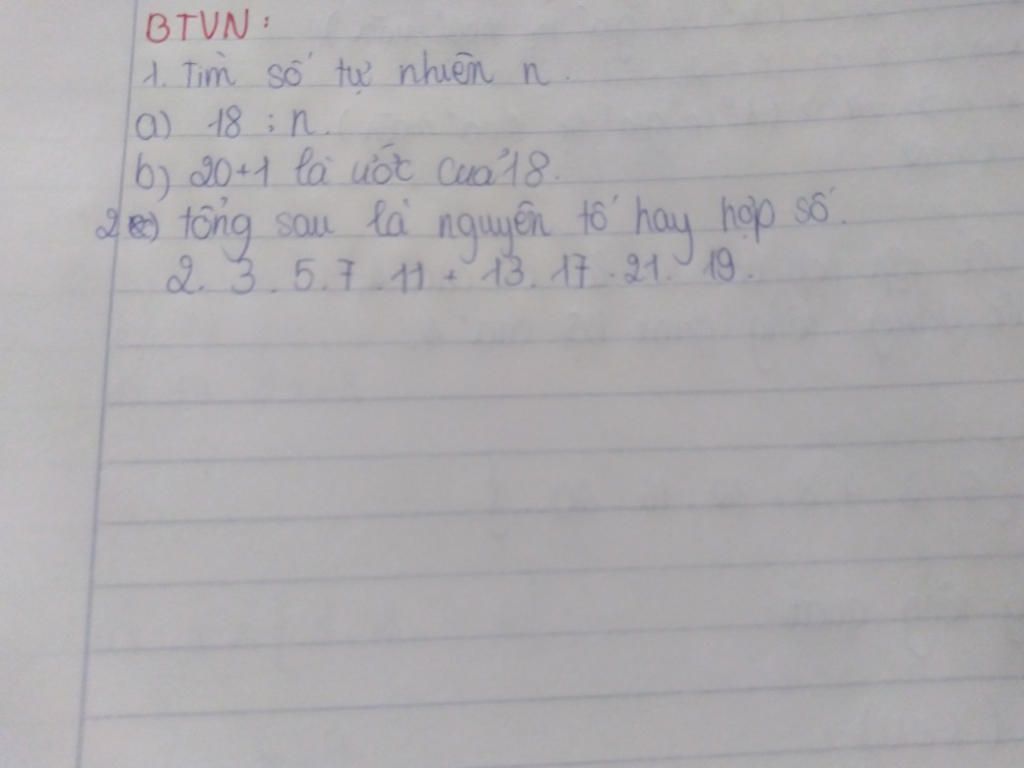 BTVN:
1. Tìm số tự nhiên n.
a) 18 ⋮ n.
b) 20+1 là ước của 18.
2) tổng sau là nguyên tố hay hợp số.
2. 3. 5. 7. 11 + 13. 17. 21. 19.